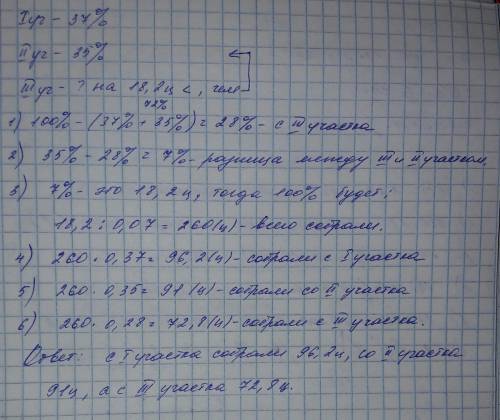 I уг - 37%
II уг - 35%
III уг - ? на 18,2ц <, чем
72%
1) 100% - (37% + 35%) = 28% - с III участка
2) 35% - 28% = 7% - разница между III и II участком.
3) 7% - это 18,2 ц, тогда 100% будет:
18,2 : 0,07 = 260 (ц) - всего собрали.
4) 260 · 0,37 = 96,2 (ц) - собрали с I участка
5) 260 · 0,35 = 91 (ц) - собрали со II участка
6) 260 · 0,28 = 72,8 (ц) - собрали с III участка.
Ответ: с I участка собрали 96,2ц, со II участка
91ц, а с III участка 72,8ц.